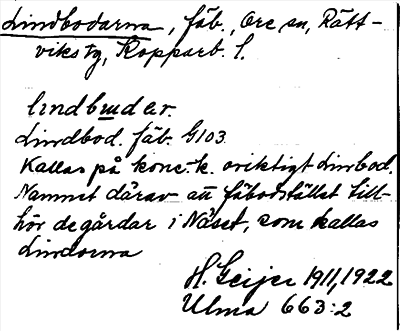 Lindbodarna, fäb., Ore sn, Rätt-
viks tg, Kopparb. l.
lindbudar.
Lindbod. fäb. G103.
Kallas på konc. k. oriktigt Limbod.
Namnet därav att fäbodstället till-
hör de gårdar i Näset, som kallas
Lindorna
H. Geijer 1911, 1922
Ulma 663:2